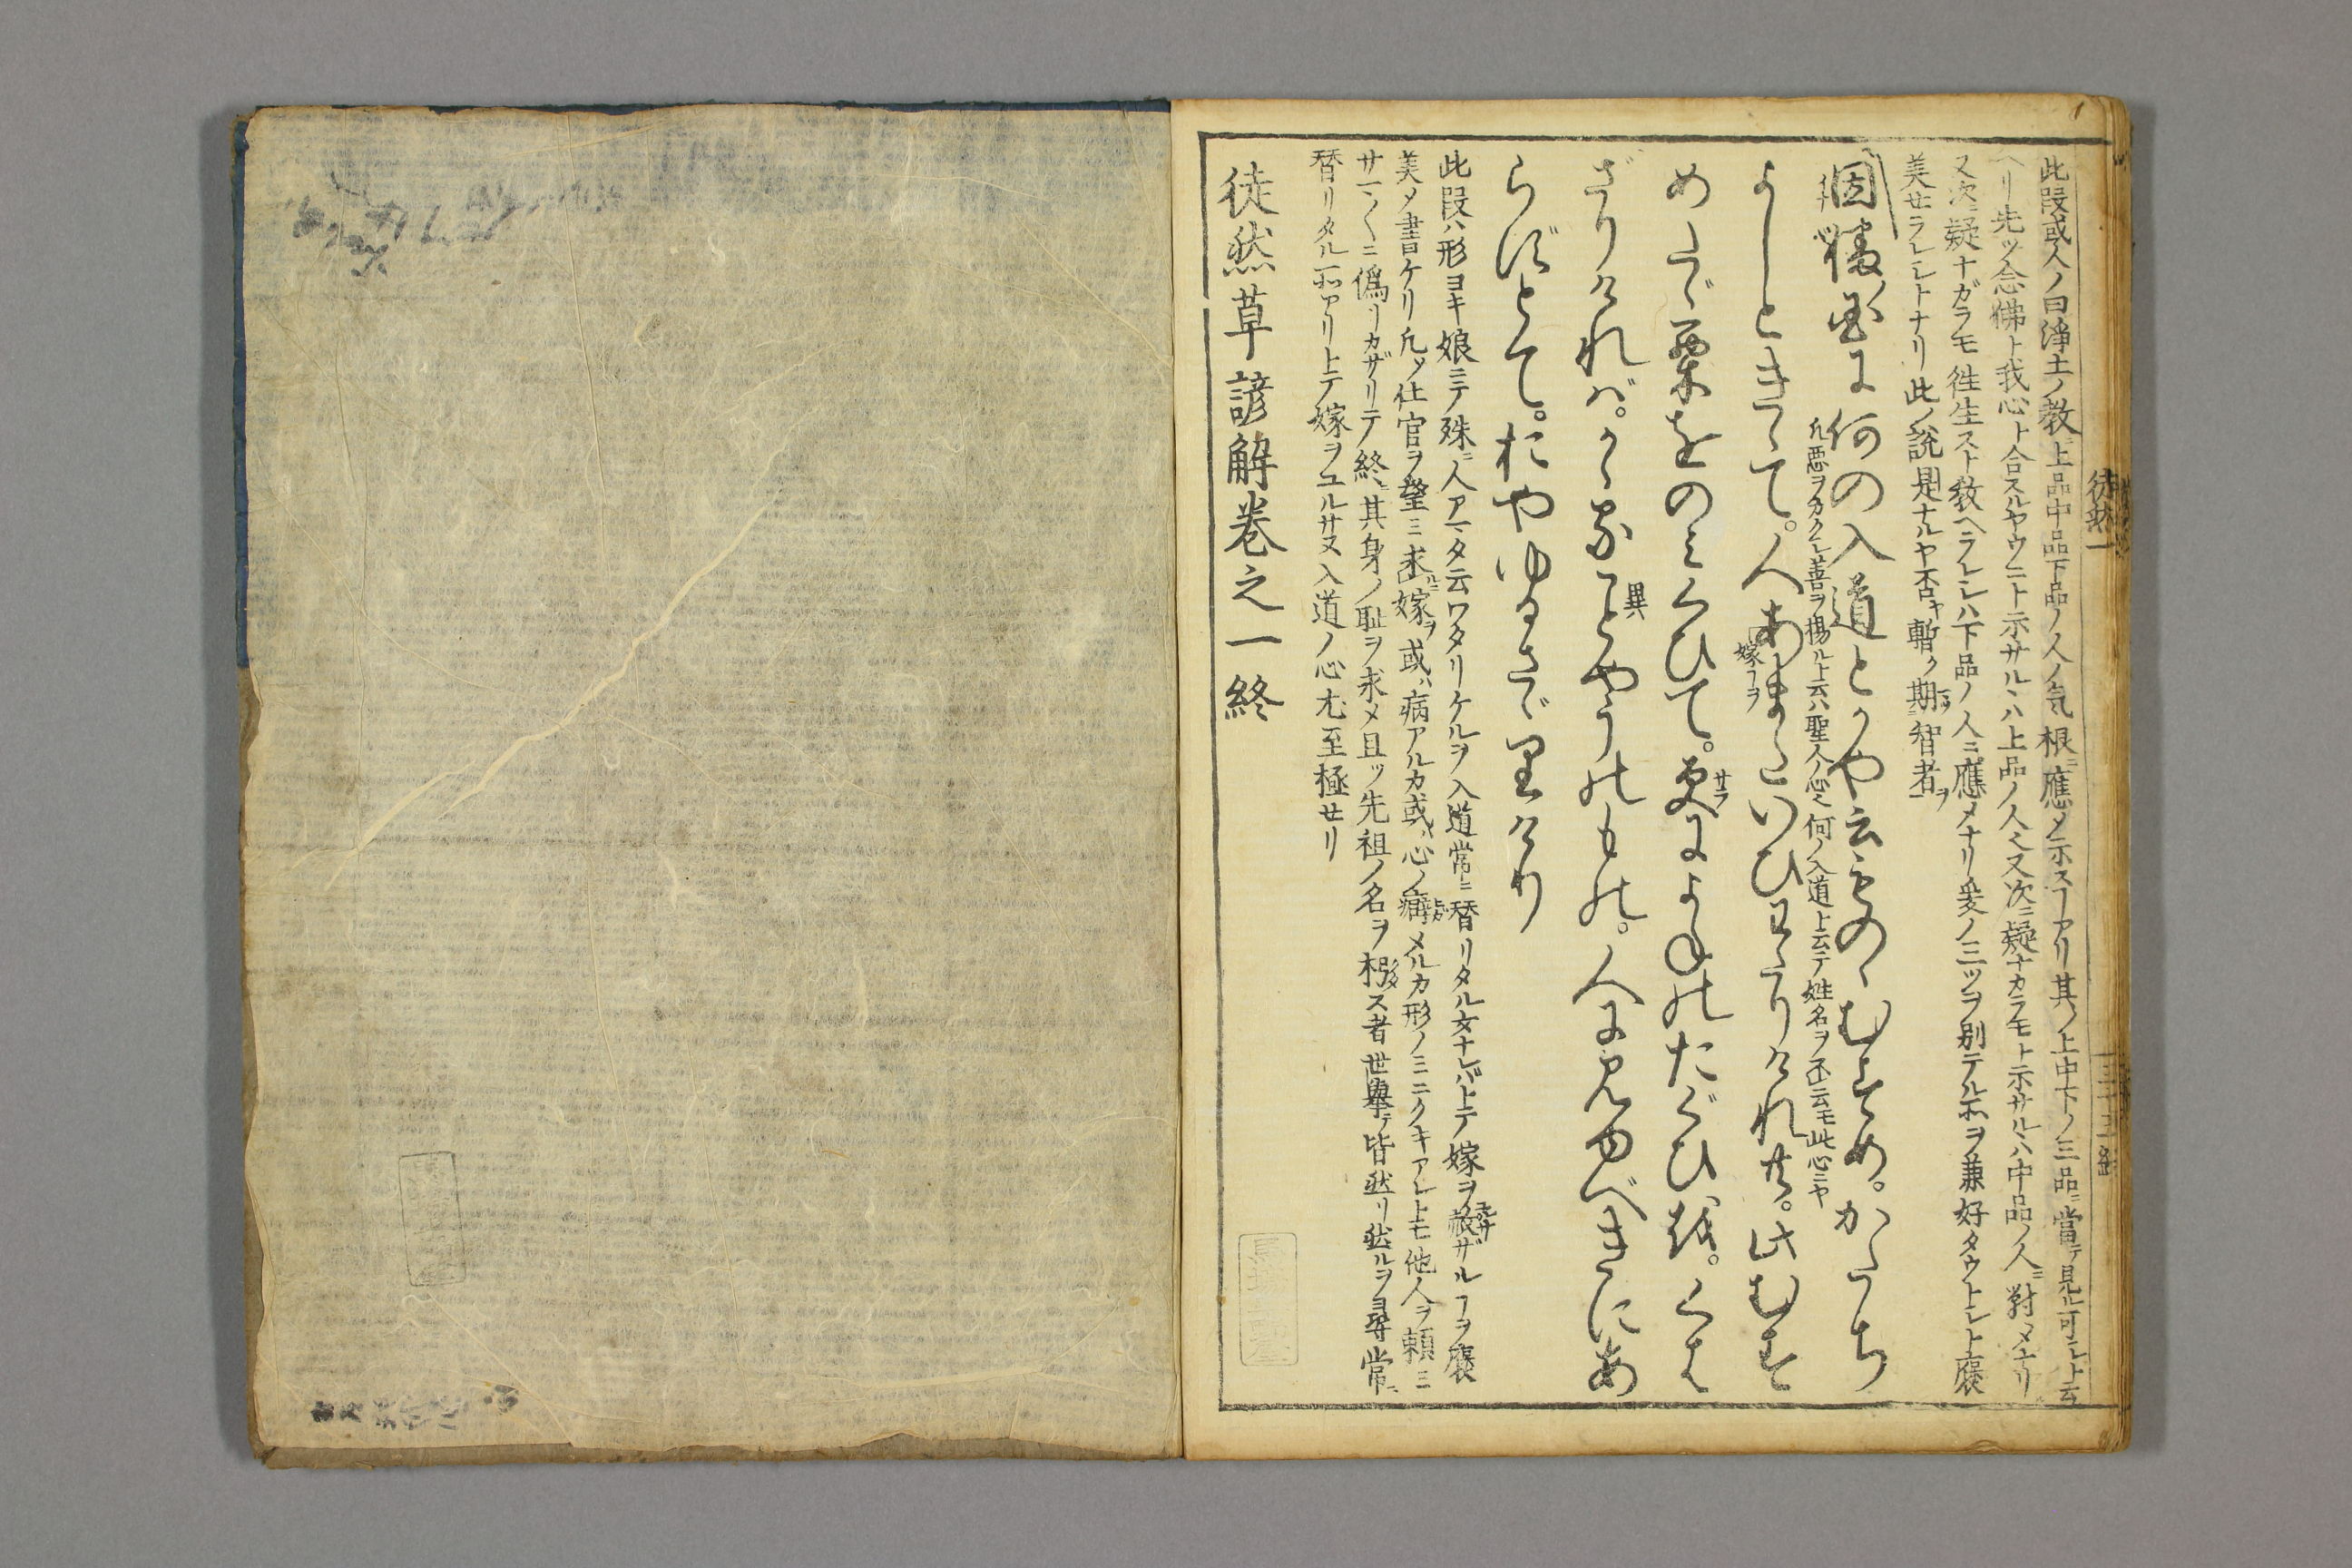 此段或人ノ曰淨土ノ教ニ上品中品下品ノ人ノ気根ニ應メ示スヿアリ其ノ上中下ノ三品ニ當テ見ル可シト云
ヘリ先ツ念佛ト我心ト合スルヤウニト示サルヽハ上品ノ人也又次ニ疑ナカラモト示サルヽハ中品ノ人ニ對メナリ
又次ニ疑ナガラモ徃生スト教ヘラレシハ下品ノ人ニ應メナリ爰ノ三ツヲ別テル所ヲ兼好タウトシト褒
美セラレシトナリ此ノ説是ナルヤ否ヤ暫ク期ス智者ヲ
因幡国に何の入道とかや云ものゝむすめ。かたち
凡悪ヲカクシ善ヲ揚ルト云ハ聖人ノ心也何ノ入道ト云テ姓名ヲ不云モ此心ニヤ
よしときゝて。人あまたいひわたりけれ共。此むす
嫁ヿヲ
めたゞ栗をのみくひて。更によねのたぐひを。くは
サラ
ざりければ。かゝることやうのもの。人に見ゆべきにあ
異
らずとて。おやゆるさゞりけり
此段ハ形ヨキ娘ニテ殊ニ人アマタ云ワタリケルヲ入道常ニ替リタル女ナレバトテ嫁ヲ赦サザルヿヲ褒
美メ書ケリ凡ソ仕官ヲ望ミ求ルニ嫁ヲ或ハ病アルカ或ハ心ノ痛メルカ形ノミニクキアレトモ他人ヲ頼ミ
サマ〱ニ偽リカザリテ終ニ其身ノ耻ヲ求メ且ツ先祖ノ名ヲ朽ス者世擧テ皆然リ然ルヲ尋常ニ
替リタル所アリトテ嫁ヲユルサヌ入道ノ心尤至極セリ
徒然草諺解巻之一終
徒然一
三十三終